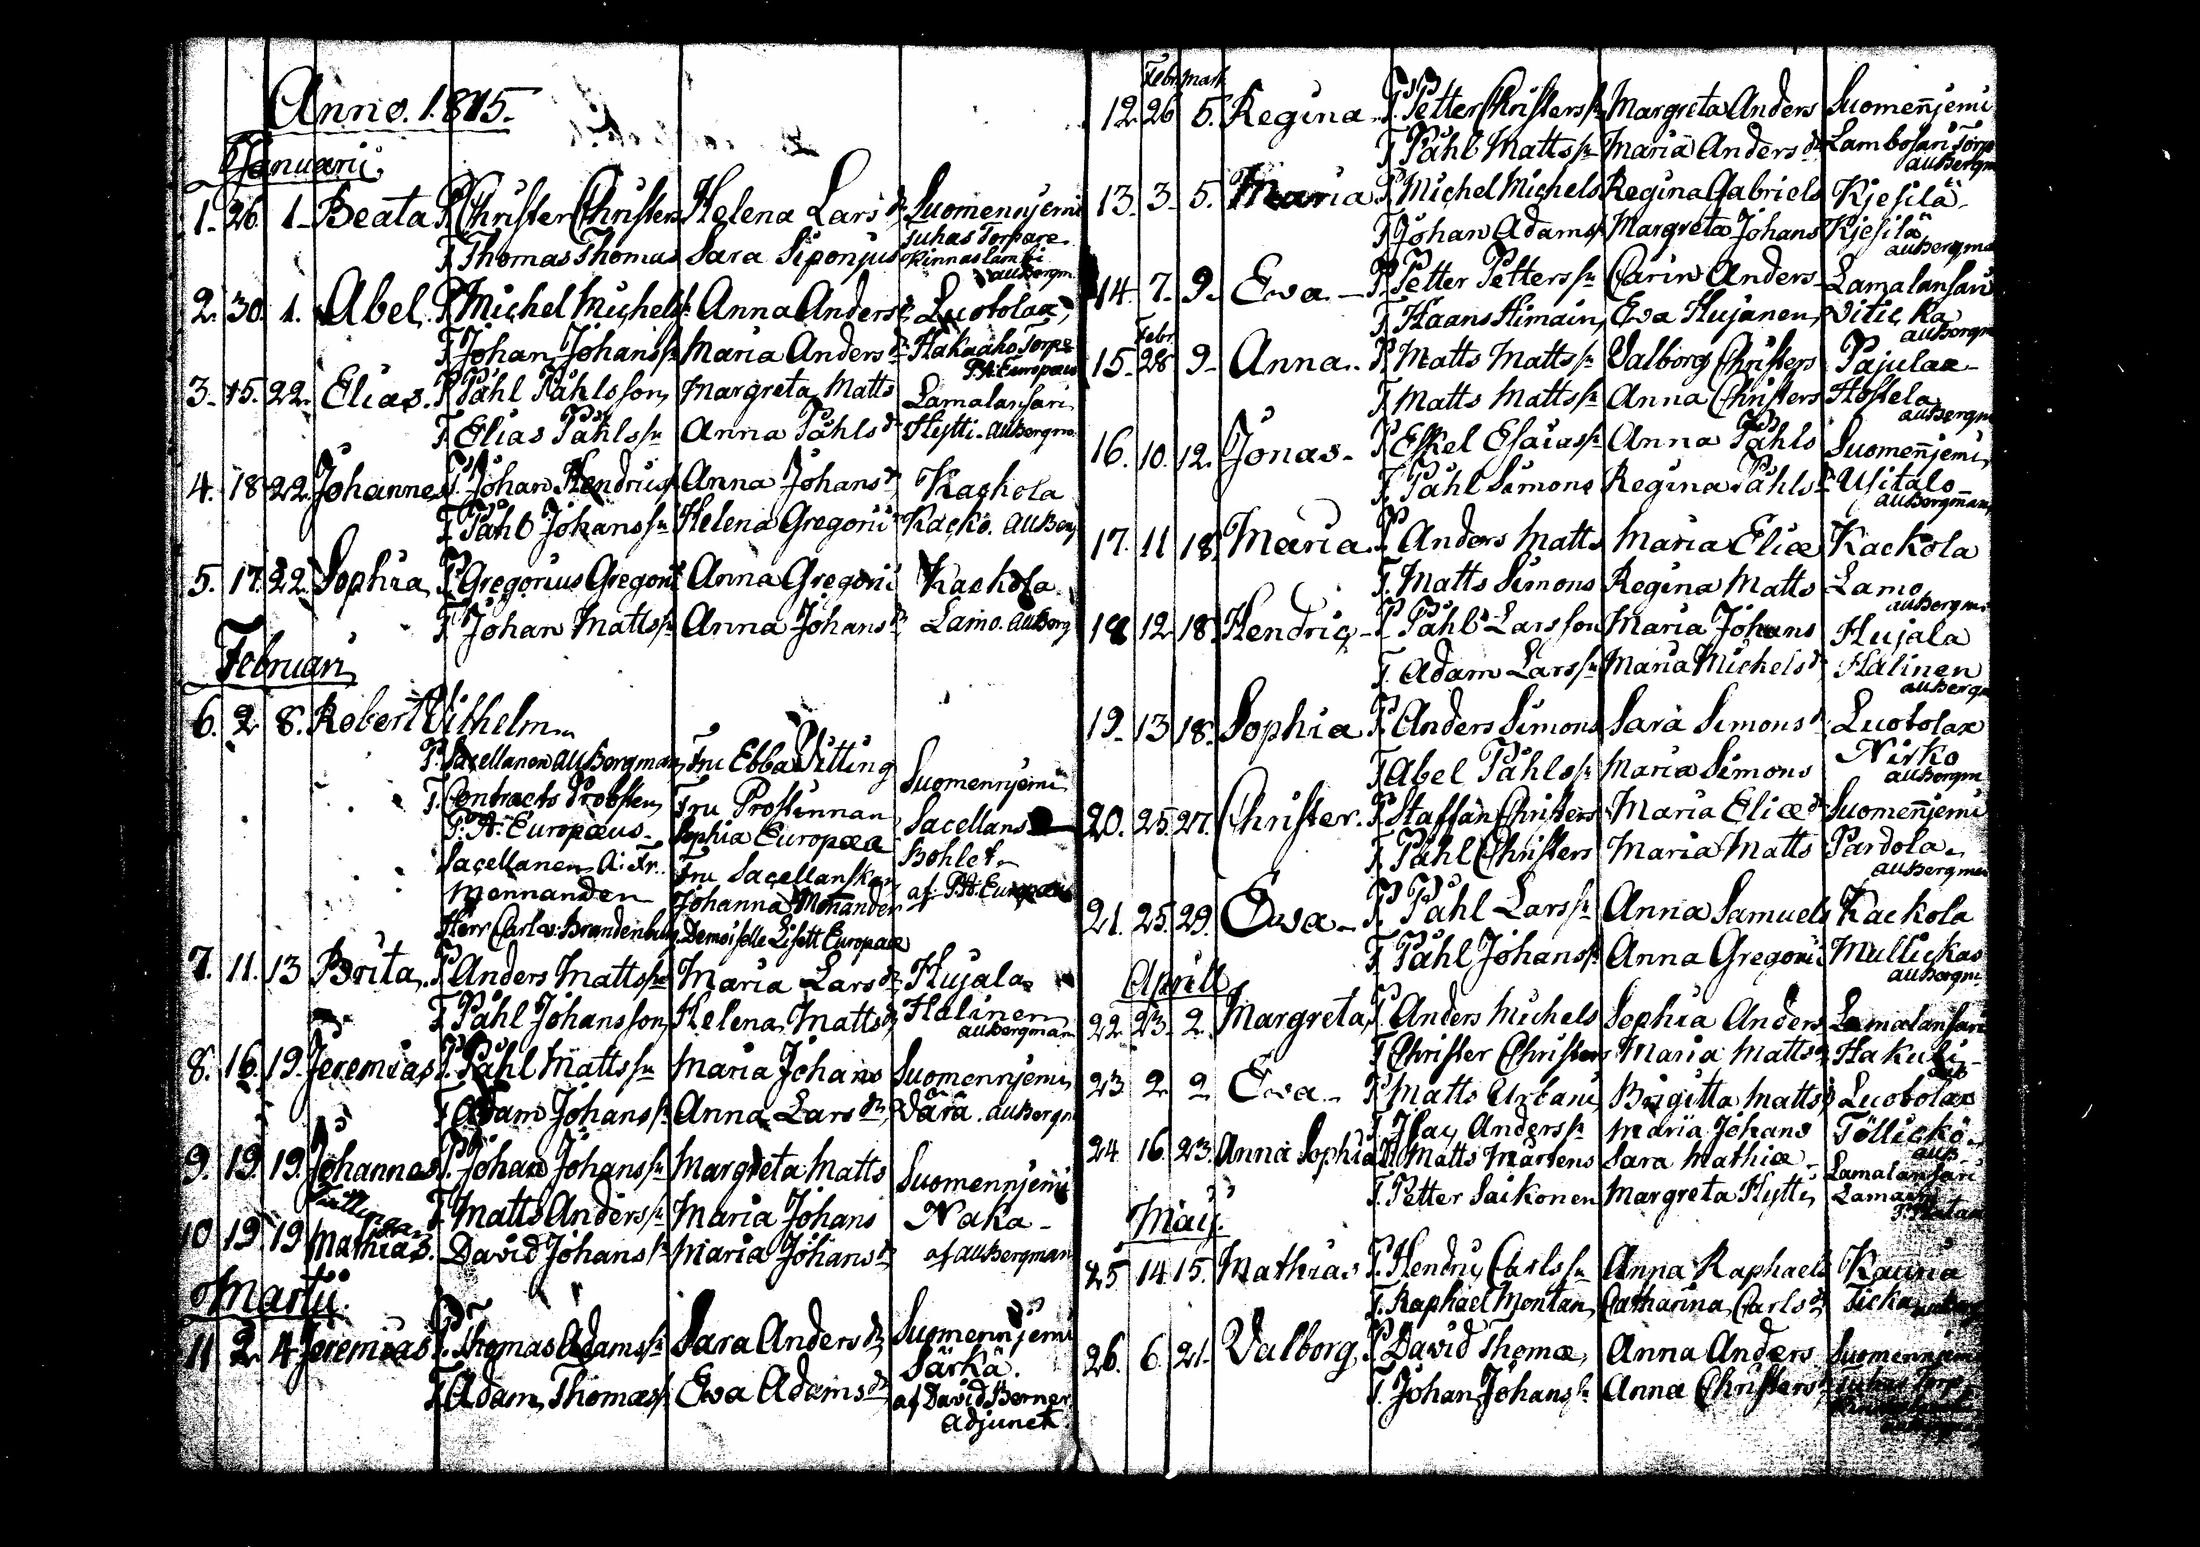 Anno. 1815.
Januarii
1. 26. 1. Beata P. Christer Christers Helena Lars dr Suomennjemi
Juhas Torpare
T. Thomas Thomas Sara Siponjus Kinnaslambi
auBergm
2. 30. 1. Abel. P. Michel Michels Anna Anders dr Luotolax
T. Johan Johanssn Maria Anders dr Hakaaho Torp
PA: Europæus
3. 15. 22. Elias. P. Påhl Påhlsson Margreta Matts Lamalansari
T. Elias Påhlssn Anna Påhls dr Hytti. auBergm
4. 18. 22. Johannes P. Johan Hendrics Anna Johans dr Kackola
T. Påhl Johanssn Helena Gregorii Kacko. auBerg
5. 17. 22. Sophia P. Gregorius Gregorii Anna Gregorii Kackola
T. Johan Mattssn Anna Johans dr Lamo. auBerg
Februari
6. 2. 8. Robert Vilhelm
P. Sacellanen AuBergman Fru Ebba Vitting Suomennjemi
T. Contracts Probsten Fru Prostinnan Sacellans
P: A: Europæus Sophia Europæa Bohlet
Sacellanen A: Fr. Fru Sacellanskan af PA: Europæus
Monnanden Johanna Monander
Herr Carl v: Brandenburg Demoiselle Lisett Europæa
7. 11. 13 Brita P. Anders Mattssn Maria Lars dr Hujala
T. Påhl Johansson Helena Matts dr Halinen
auBergman
8. 16. 19. Jeremias P. Påhl Mattssn Maria Johans Suomennjemi
T. Adam Johanssn Anna Lars dr Värä. auBergm
9. 19. 19. Johannes P. Johan Johanssn Margreta Matts Suomennjemi
Tvillingar
T. Matts Anderssn Maria Johans Naka
10 19. 19 Mathias. David Johanssn Maria Johans dr af auBergman
Martii
11 2. 4. Jeremias P. Thomas Adamssn Sara Anders dr Suomennjemi
Särkä.
T. Adam Thomass Eva Adams dr af David Berner
Adjunct
Febr Mart
12. 26 5. Regina P. Petter Christerssn Margreta Anders Suomenjemi
T. Påhl Mattssn Maria Anders dr Lambosari Torp
auBergm
13. 3. 5. Maria P. Michel Michels Regina Gabriels Kjesilä
T. Johan Adams Margreta Johans Kjesilä
auBergm
14. 7. 9. Eva P. Petter Petterssn Carin Anders Lamalansari
T. Haans Himain Eva Hujanen Viticka
auBergm
Febr
15. 28 9. Anna. P. Matts Mattssn Valborg Christers Pajulax
T. Matts Mattssn Anna Christers Hostela
auBergm
16. 10. 12. Jonas P. Eskel Esaiassn Anna Påhls Suomenjemi
T. Påhl Simons Regina Påhls Usitalo
auBergman
17. 11 18. Maria P. Anders Matts Maria Eliæ Kackola
T. Matts Simons Regina Matts Lamo
auBergm
18 12. 18. Hendric P. Påhl Larsson Maria Johans Hujala
T. Adam Larssn Maria Michels dr Halinen
auBergm
19. 13 18. Sophia P. Anders Simons Sara Simons dr Luotolax
Nirko
T. Abel Påhlssn Maria Simons auBergm
20. 25. 27. Christer. P. Staffan Christers Maria Eliæ dr Suomenjemi
T. Påhl Christers Maria Matts Pardola
auBergman
21. 25. 29. Eva P. Påhl Larssn Anna Samuels Kackola
T. Påhl Johanssn Anna Gregorii Mullickas
auBergm
Aprill
22. 23. 2. Margreta P. Anders Michels Sophia Anders Lamalansari
T. Christer Christers Maria Matts dr Hakuli
auB
23 2. 2. Eva P. Matts Urbani Brigitta Matts dr Luotolax
T. Isac Anderssn Maria Johans Töllickö
auB
24 16. 23. Anna Sophia P. Matts Mårtens Sara Mathiæ Lamalansari
T. Petter Saikonen Margreta Hytti
Maij.
25 14 15. Mathias P. Hendric Carlssn Anna Raphaels Kauria
T. Raphael Montan Catharina Carls dr Ticka
26. 6. 21. Valborg P. David Thomæ Anna Anders Suomennjemi
T. Johan Johanssn Anna Christers dr Juhas Torp